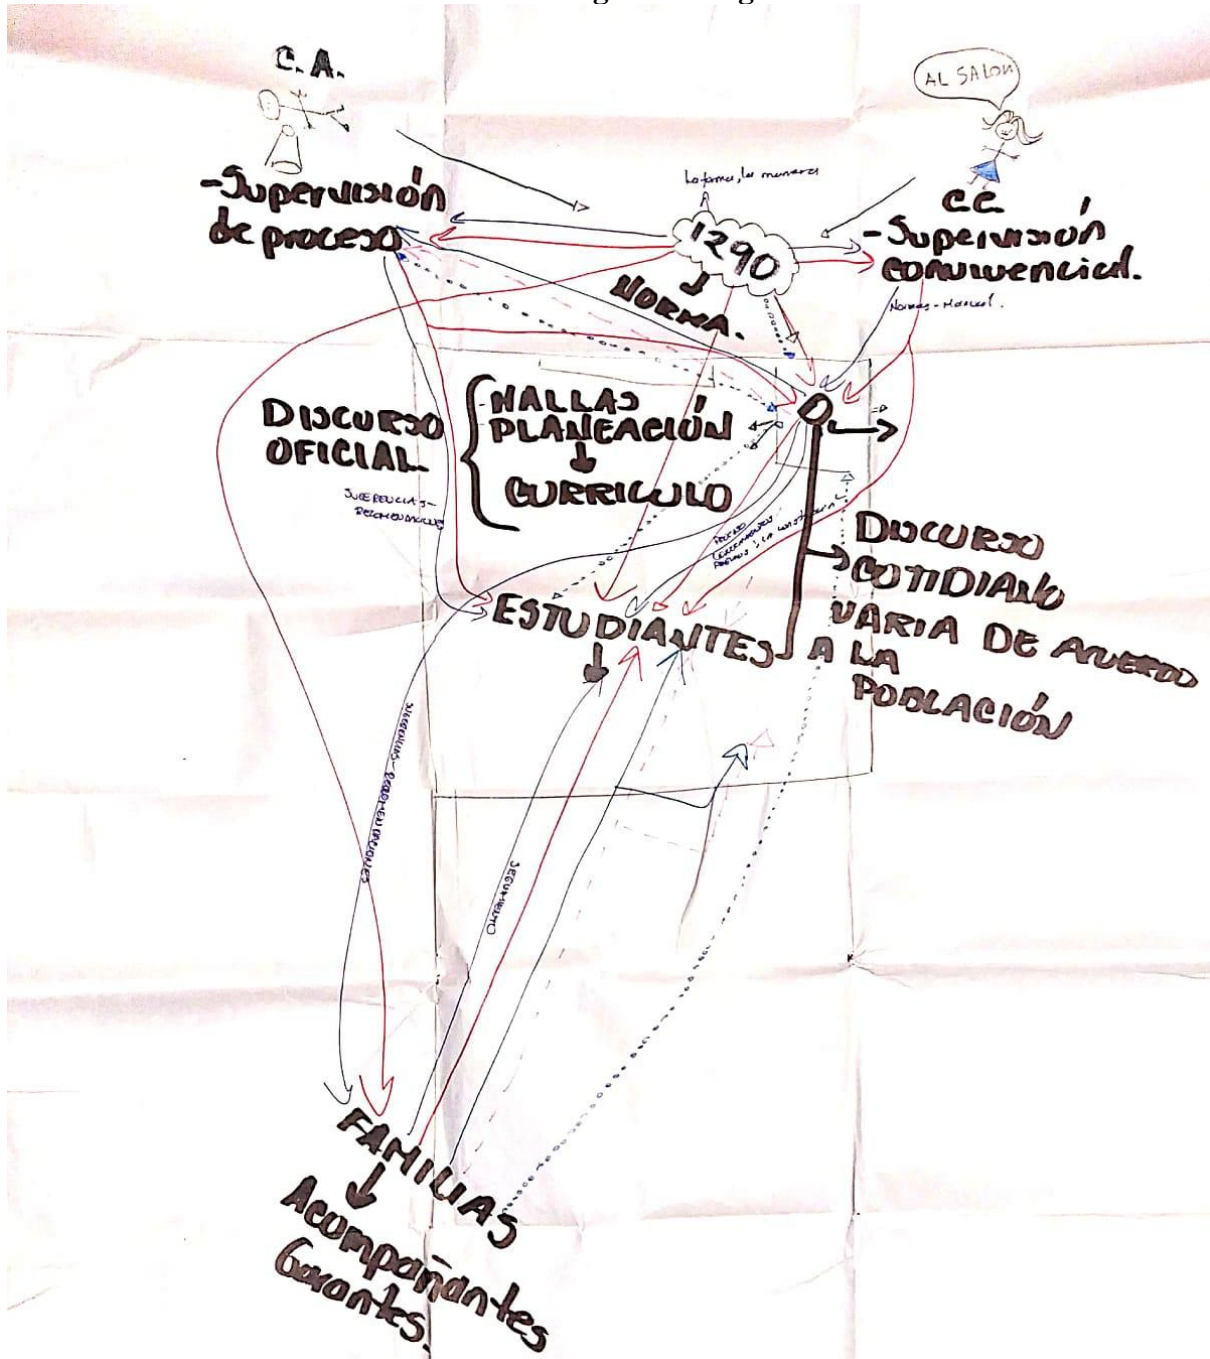 C.A.
AL SALON
-Supervisión
de proceso
La forma, las maneras
1290
NORMA.
C.C.
-Supervisión
convivencial.
Normas-Manual.
DISCURSO
OFICIAL
MALLAS
PLANEACIÓN
CURRICULO
D.
SUGERENCIAS-
RECOMENDACIONES
DISCURSO
COTIDIANO
VARIA DE ACUERDO
A LA
POBLACIÓN
ESTUDIANTES
SUGERENCIAS-RECOMENDACIONES
SEGUIMIENTO
FAMILIAS
Acompañantes
Garantes.